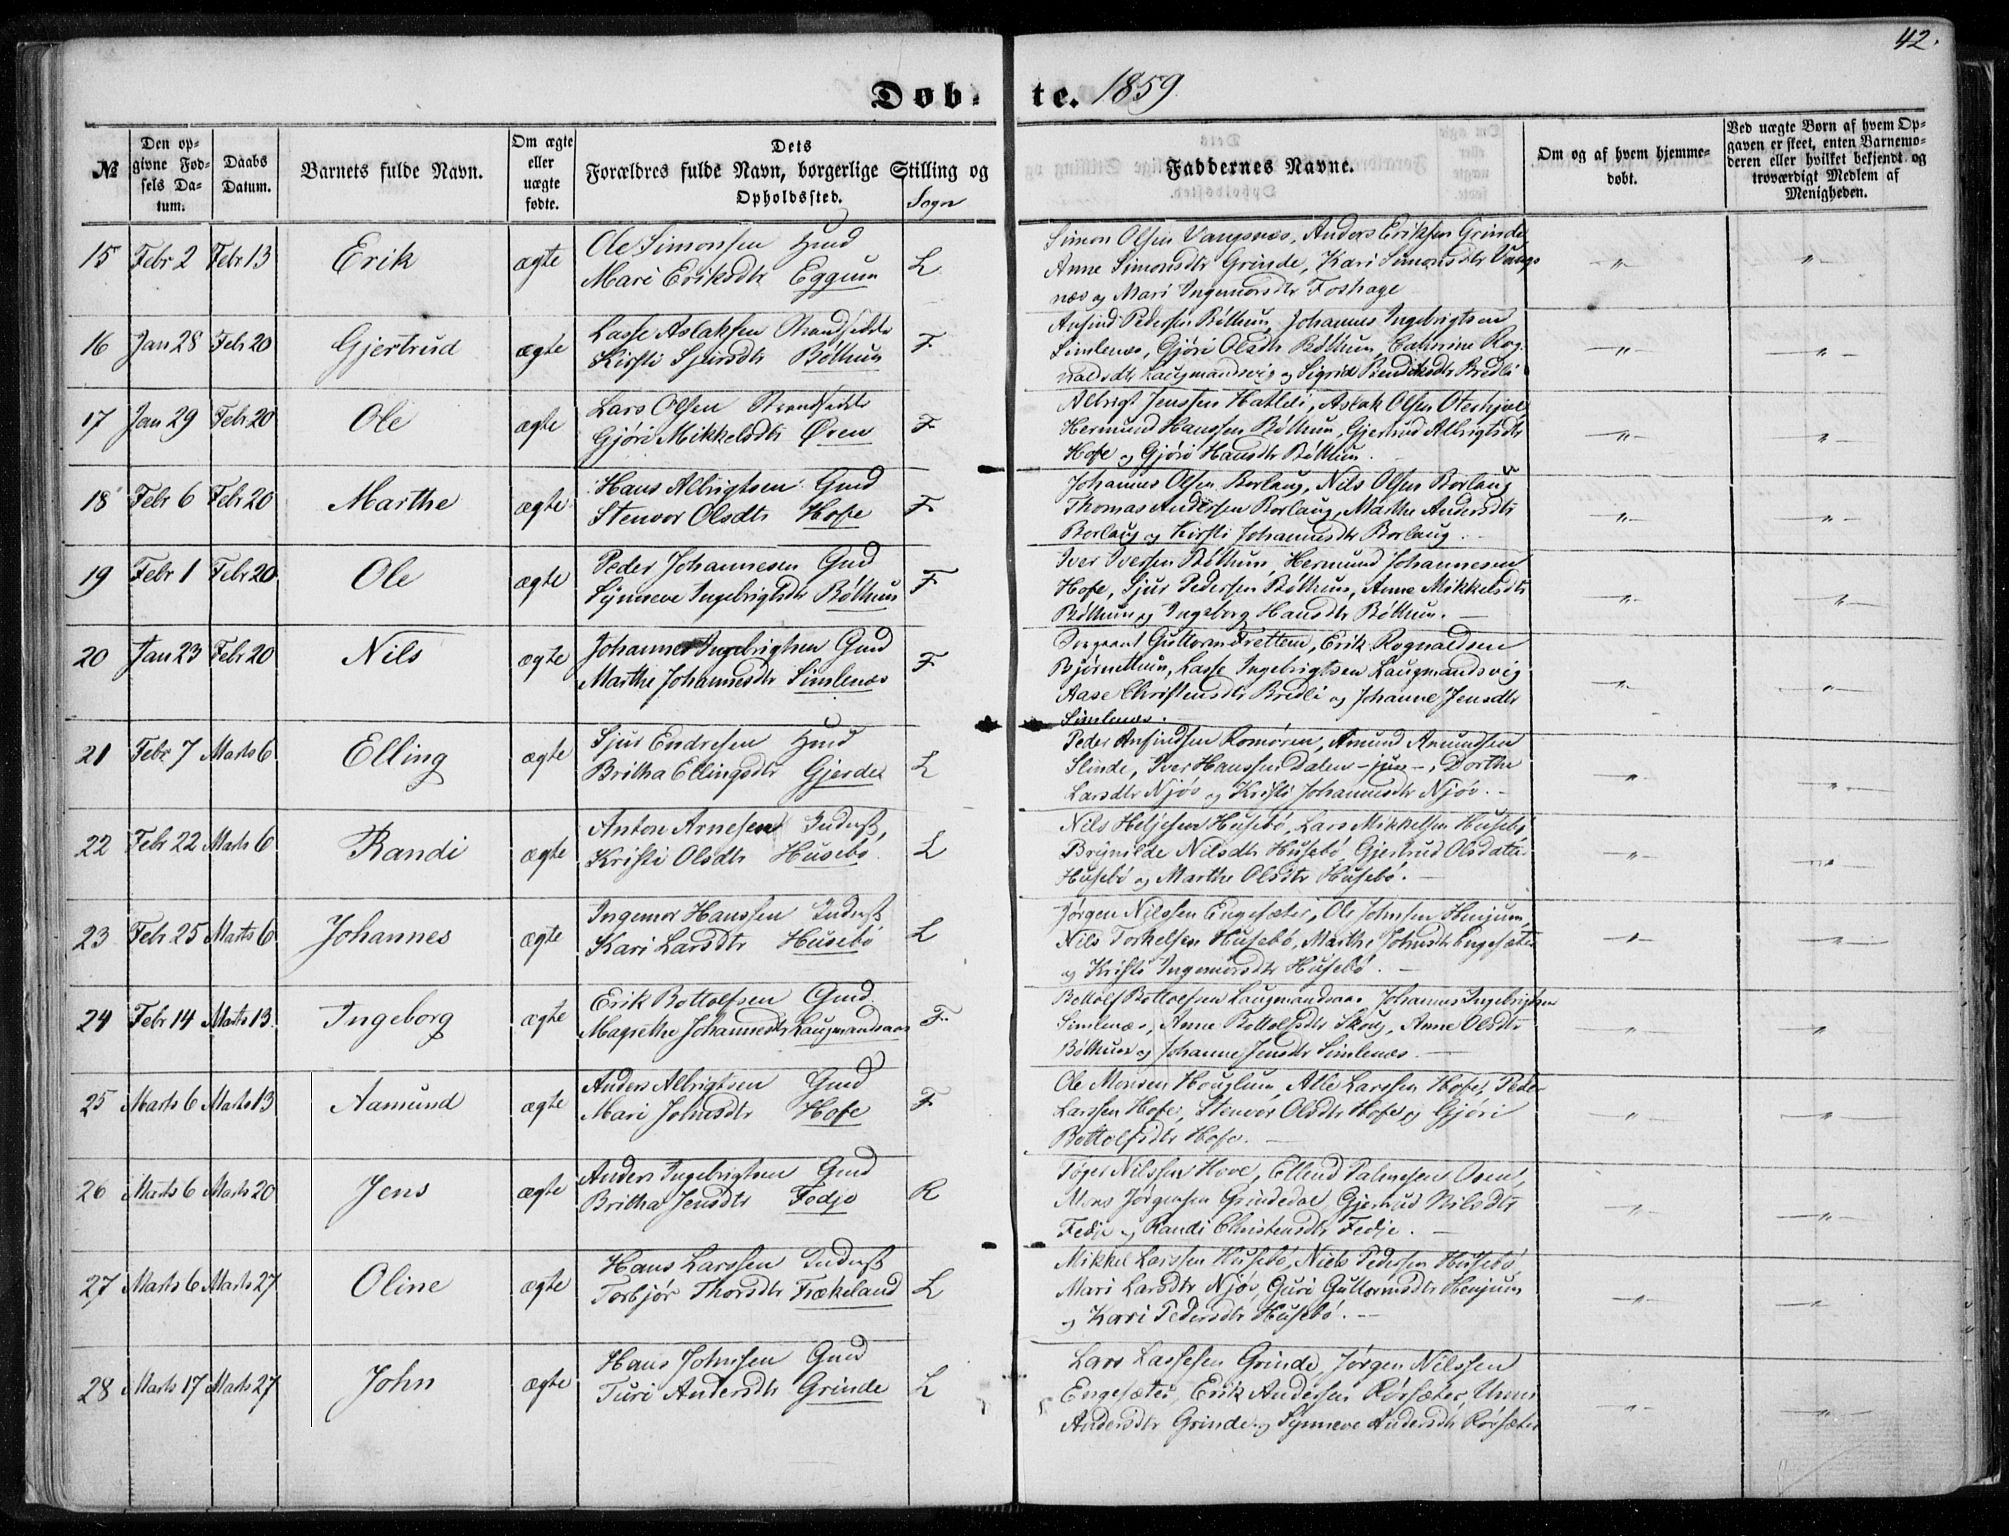 42.
Döbte. 1859
№
Den opgivne Fødsels Datum.
Daabs Datum.
Barnets fulde Navn.
Om ægte eller uægte fødte.
Dets Forældres fulde Navn, borgerlige Stilling og Opholdssted.
Sogn
Faddernes Navne.
Om og af hvem hjemmedøbt.
Ved uægte Børn af hvem Opgaven er skeet, enten Barnemoderen eller hvilket bekjendt og troværdigt Medlem af Menigheden.
15 Febr 2 Febr 13 Erik ægte Ole Simonsen Hmd
Mari Eriksdtr Eggum L
Simon Olsen Vangsnæs, Anders Eriksen Grinde
Anne Simonsdtr Grinde, Kari Simonsdtr Vangs
næs og Mari Ingemorsdtr Foshage
16 Jan 28 Febr 20 Gjertrud ægte Lasse Aslaksen Strandsidder
Kirsti Sjursdtr Böthum F
Anfind Pedersen Böthum, Johannes Ingebrigtsen
Simlenæs, Gjöri Olsdtr Böthum, Cathrine Rog
naldsdtr Laugmandsvig og Sigrid Bendiksdtr Bredli
17 Jan 29 Febr 20 Ole ægte Lars Olsen Strandsidder
Gjöri Mikkelsdtr Øren F
Albrigt Jenssen Hatleli, Aslak Olsen
Hermund Hanssen Böthum, Gjertrud Albrigtsdtr
Hofe og Gjöri Hansdtr Böthum.
18 Febr 6 Febr 20 Marthe ægte Hans Albrigtsen Gmd
Stenvor Olsdtr Hofe F
Johannes Olsen Borlaug, Nils Olsen Borlaug
Thomas Andersen Borlaug, Marthe Andersdtr
Borlaug og Kirsti Johannesdtr Borlaug.
19 Febr 1 Febr 20 Ole ægte Peder Johannesen Gmd
Synneve Ingebrigtsdtr Böthum F
Iver Iversen Böthum, Hermund Johannesen
Hofe, Sjur Pedersen Böthum, Anne Mikkelsdtr
Böthum og Ingeborg Hansdtr Böthum.
20 Jan 23 Febr 20 Nils ægte Johannes Ingebrigtsen Gmd
Marthe Johannesdtr Simlenæs F
Sergeant Guttorm Fretten, Erik Rognaldsen
Björnethun, Lasse Ingebrigtsen Laugmandsvig
Aase Christensdtr Bredli og Johanne Jensdtr
Simlenæs.
21 Febr 7 Marts 6 Elling ægte Sjur Endresen Hmd
Britha Ellingsdtr Gjerde L
Peder Anfindsen Romören, Amund Amundsen
Slinde, Iver Hanssen Dalen -jun-, Dorthe
Larsdtr Njös og Kristi Johannesdtr Njös.
22 Febr 22 Marts 6 Randi ægte Anton Arnesen Inderst,
Kristi Olsdtr Husebö. L
Nils Heljesen Husebö, Lars Mikkelsen Husebö
Brynilde Nilsdtr Husebö, Gjertrud Olsdatter
Husebö og Marthe Olsdtr Husebö.
23 Febr 25 Marts 6 Johannes ægte Ingemor Hanssen Inderst
Kari Larsdtr Husebö L
Jörgen Nilssen Engesæter, Ole Johnsen Henjum,
Nils Torkelsen Husebö, Marthe Johnsdtr Engesæter
og Kristi Ingemorsdtr Husebö.
24 Febr 14 Marts 13. Ingeborg ægte Erik Bottolfsen Gmd.
Magrethe Johannesdtr Laugmandsaas F.
Bottolf Bottolfsen Laugmandsaas Johannes Ingebrigtsen
Simlenæs, Anne Bottolfsdtr Skoug, Anne Olsdtr
Böthum og Johanne Jensdtr Simlenæs.
25 Marts 6 Marts 13 Aamund ægte Anders Albrigtsen Gmd
Mari Johnsdtr Hofe F
Ole Monsen Houglum, Atle Larssen Hofe, Peder
Larssen Hofe, Stenvor Olsdtr Hofe og Gjöri
Bottolfsdtr Hofe.
26 Marts 6 Marts 20 Jens ægte Anders Ingebrigtsen Gmd
Britha Jensdtr Fedje R
Töger Nilssen Hove, Ellend Palmesen Osen,
Mons Jörgensen Grindedal Gjertrud Nilsdtr
Fedje og Randi Christensdtr Fedje.
27 Marts 6 Marts 27 Oline ægte Hans Larssen Inderst
Torbjör Thorsdtr Frækeland L
Mikkel Larssen Husebö, Niels Pedersen Husebö,
Mari Larsdtr Njös, Guri Guttormsdtr Henjum
og Kari Pedersdtr Husebö.
28 Marts 17 Marts 27 John ægte Hans Johnsen Gmd
Turi Andersdtr Grinde L
Lars Lassesen Grinde, Jörgen Nilssen
Engesæter, Erik Andersen Rörsæter,
Andersdtr Grinde og Synneve Andersdtr Rörsæter